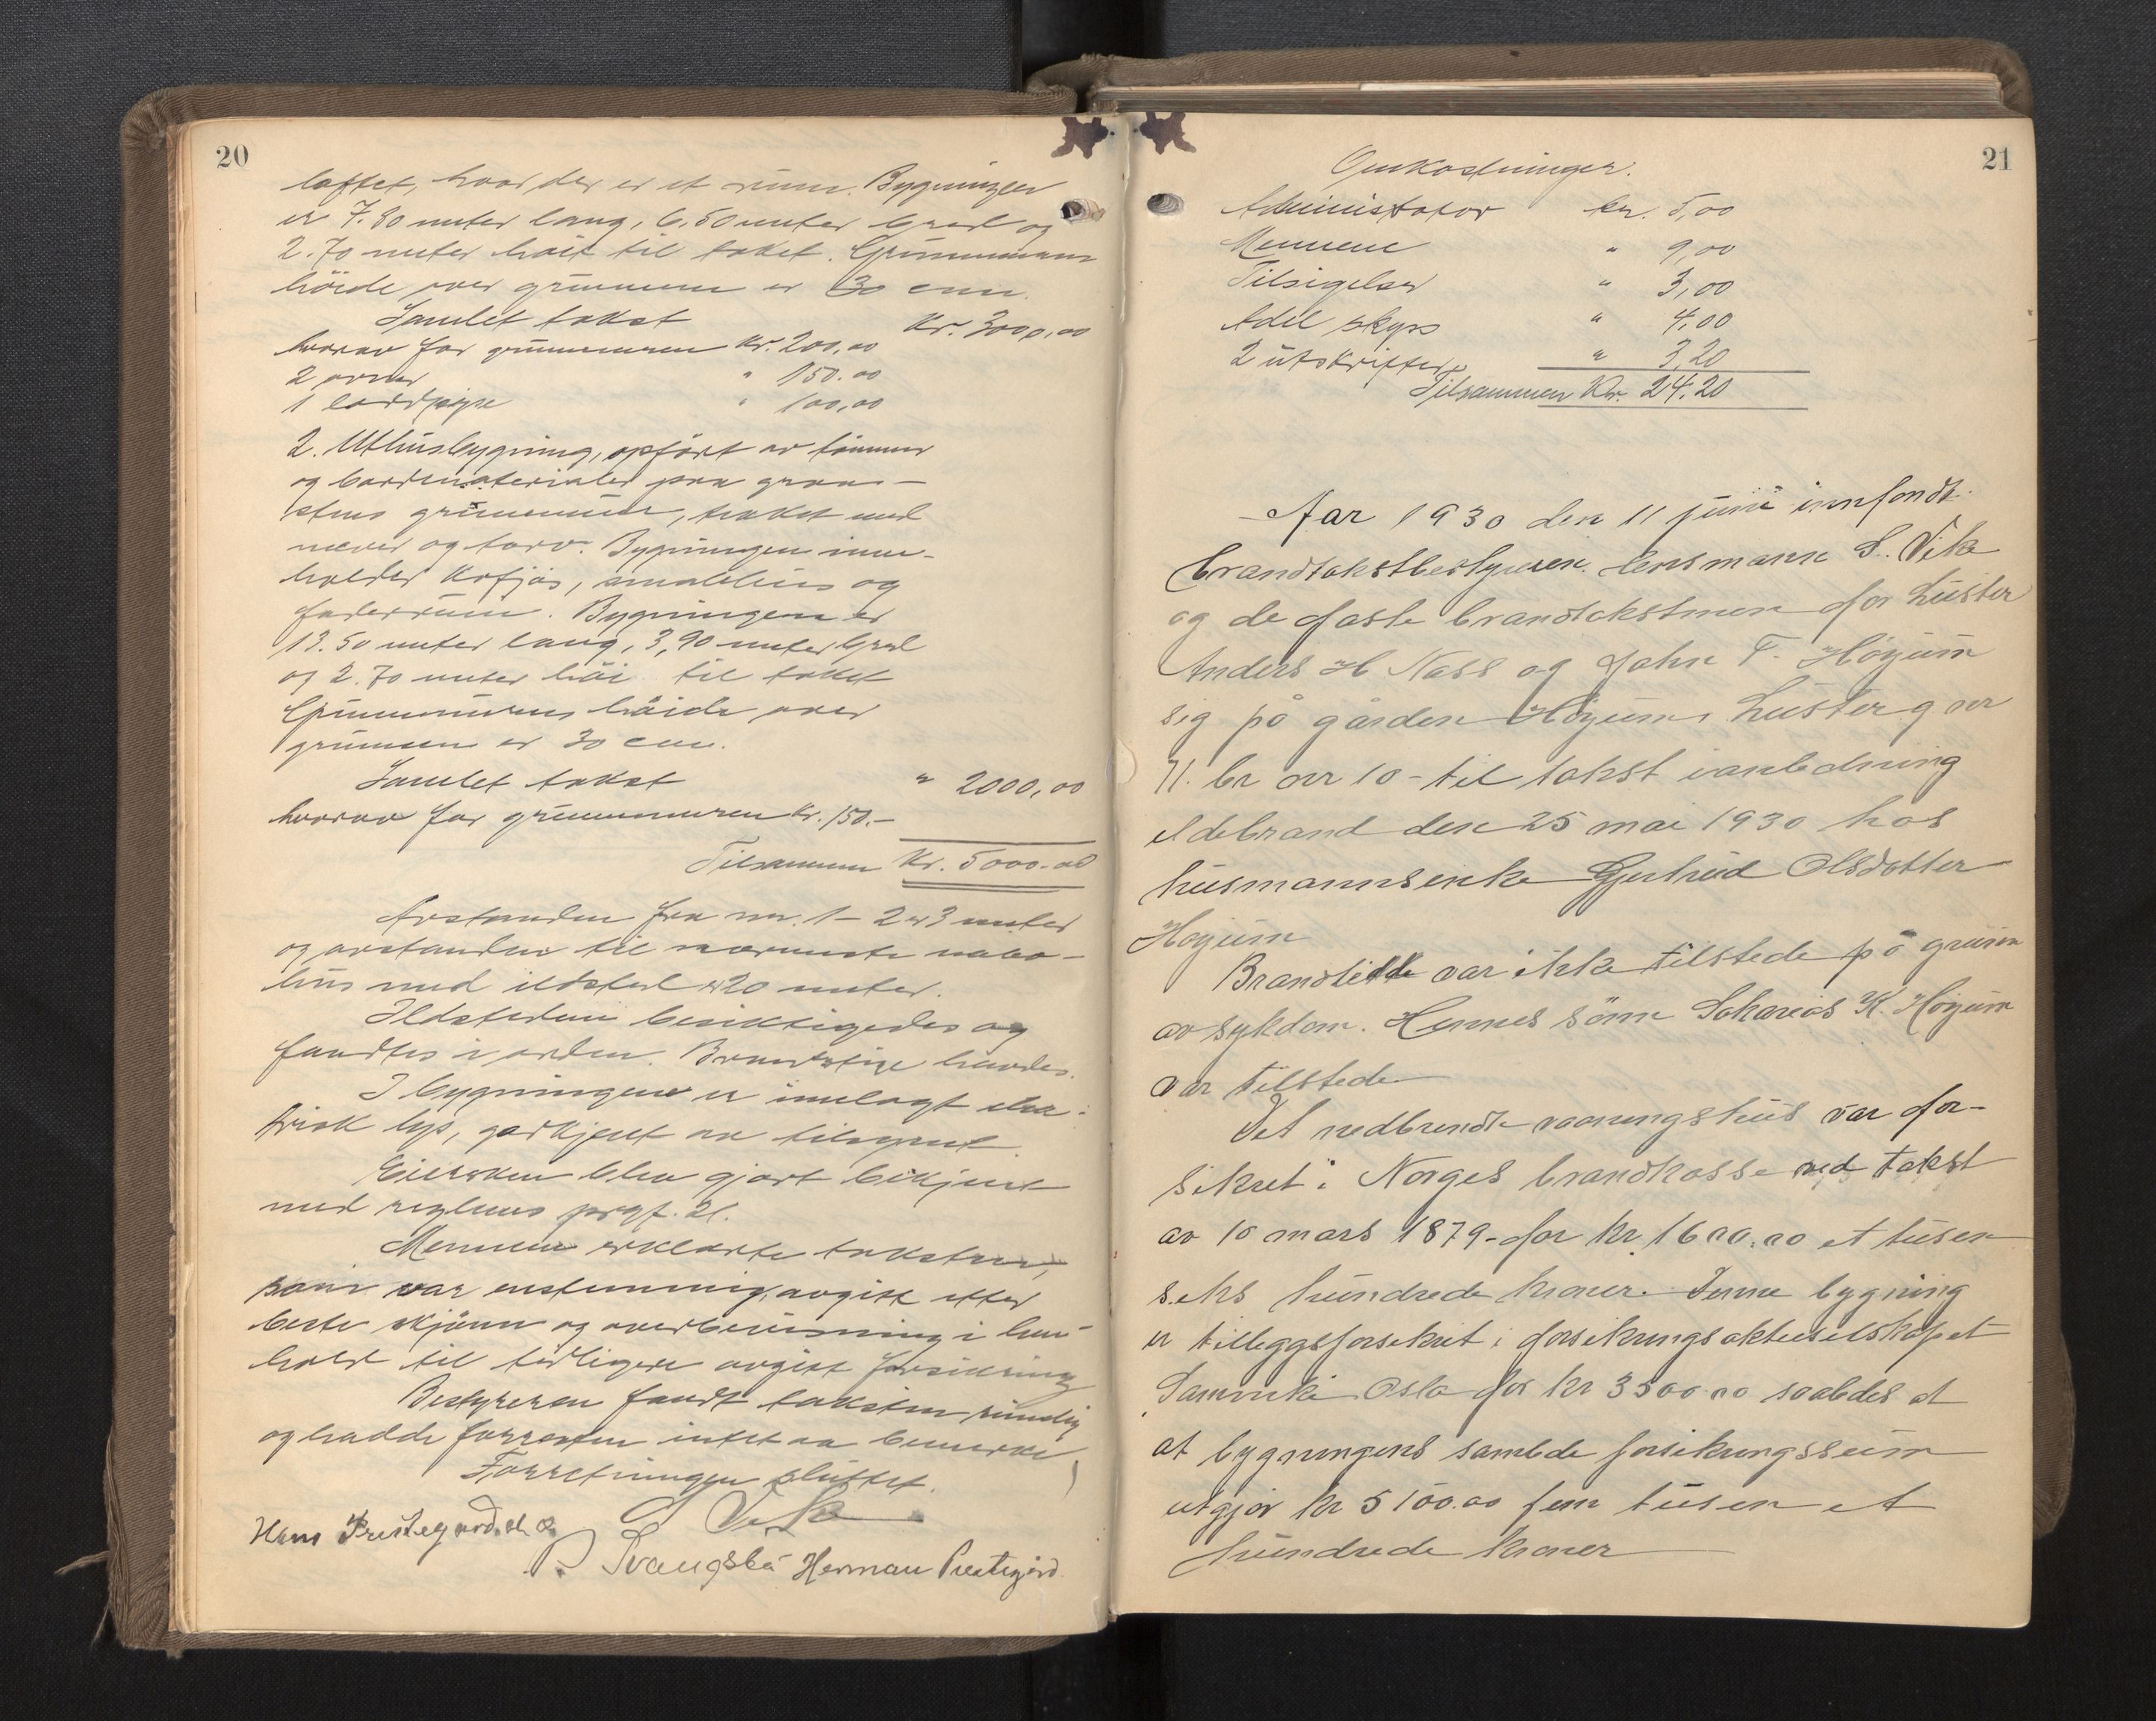 20
loftet, hvor der er et rum. Bygningen
er 7.80 meter lang, 6,50 meter bred og
2.70 meter høit til taket. Grunnmurens
höide over grunnen er 30 cm.
Samlet takst Kr. 3000,00
hvorav for grunnmuren Kr. 200,00
2 ovner " 150.00
1 pipe " 100,00
2. Uthusbygning, opført av tömmer
og bordmaterialer paa graa-
stens grunnmur, tækket med
næver og torv. Bygningen inne-
holder kufjös, smalehus og
foderrum. Bygningen er
13.50 meter lang, 3,90 meter bred
og 2.70 meter höi til taket
Grunnmurens höide over
grunnen er 30 cm.
Samlet takst " 2000,00
hvorav for grunnmuren Kr. 150.-
Tilsammen Kr. 5000.00
Avstanden fra nr. 1 - 2 er 3 meter
og avstanden til nærmeste nabo-
hus med ildsted er 20 meter.
Ildstedene besiktigedes og
fandtes i orden. Brandstige havdes.
I bygningene er innlagt elek-
trisk lys, godkjent av tilsynet.
Eiersken blev gjort bekjent
med reglenes prgf. 21.
Mennene erklærte taksten,
som var enstemmig, avgitt efter
beste skjönn og overbevisning i hen-
hold til tidligere avgitt forsikring
Bestyreren fandt taksten rimelig
og hadde forresten intet aa bemerke
Forretningen sluttet.
S Vike
Hans Prestegard
P. Svangsbø Herman Prestegård
21
Omkostninger.
Administrator kr. 5,00
Mennene " 9,00
Tilsigelser " 3,00
Adel skyss " 4,00
2 utskrifter " 3,20
Tilsammen Kr. 24,20
Aar 1930 den 11 juni innfandt
brandtakstbestyreren. lensmann S. Vike
og de faste brandtakstmen for Luster
Anders H Næss og John T. Höyum
sig på gården Höyum, Luster g. nr
71. br nr 10 - til takst ianledning
ildebrand den 25 mai 1930 hos
husmannsenke Gjertrud Olsdotter
Höyum
Brandlidte var ikke tilstede på grunn
av sykdom. Hennes sönn Sakarias K. Höyum
var tilstede
Det nedbrendte vaaningshus var for-
sikret i Norges brandkasse ved takst
av 10 mars 1879 - for kr. 1600.00 et tusen
seks hundrede kroner. Denne bygning
er tilleggsforsikret i forsikringsaktieselskapet
Samvirke Oslo for kr 3500.00 saaledes at
at bygningens samlede forsikringssum
utgjör kr 5100.00 fem tusen et
hundrede kroner